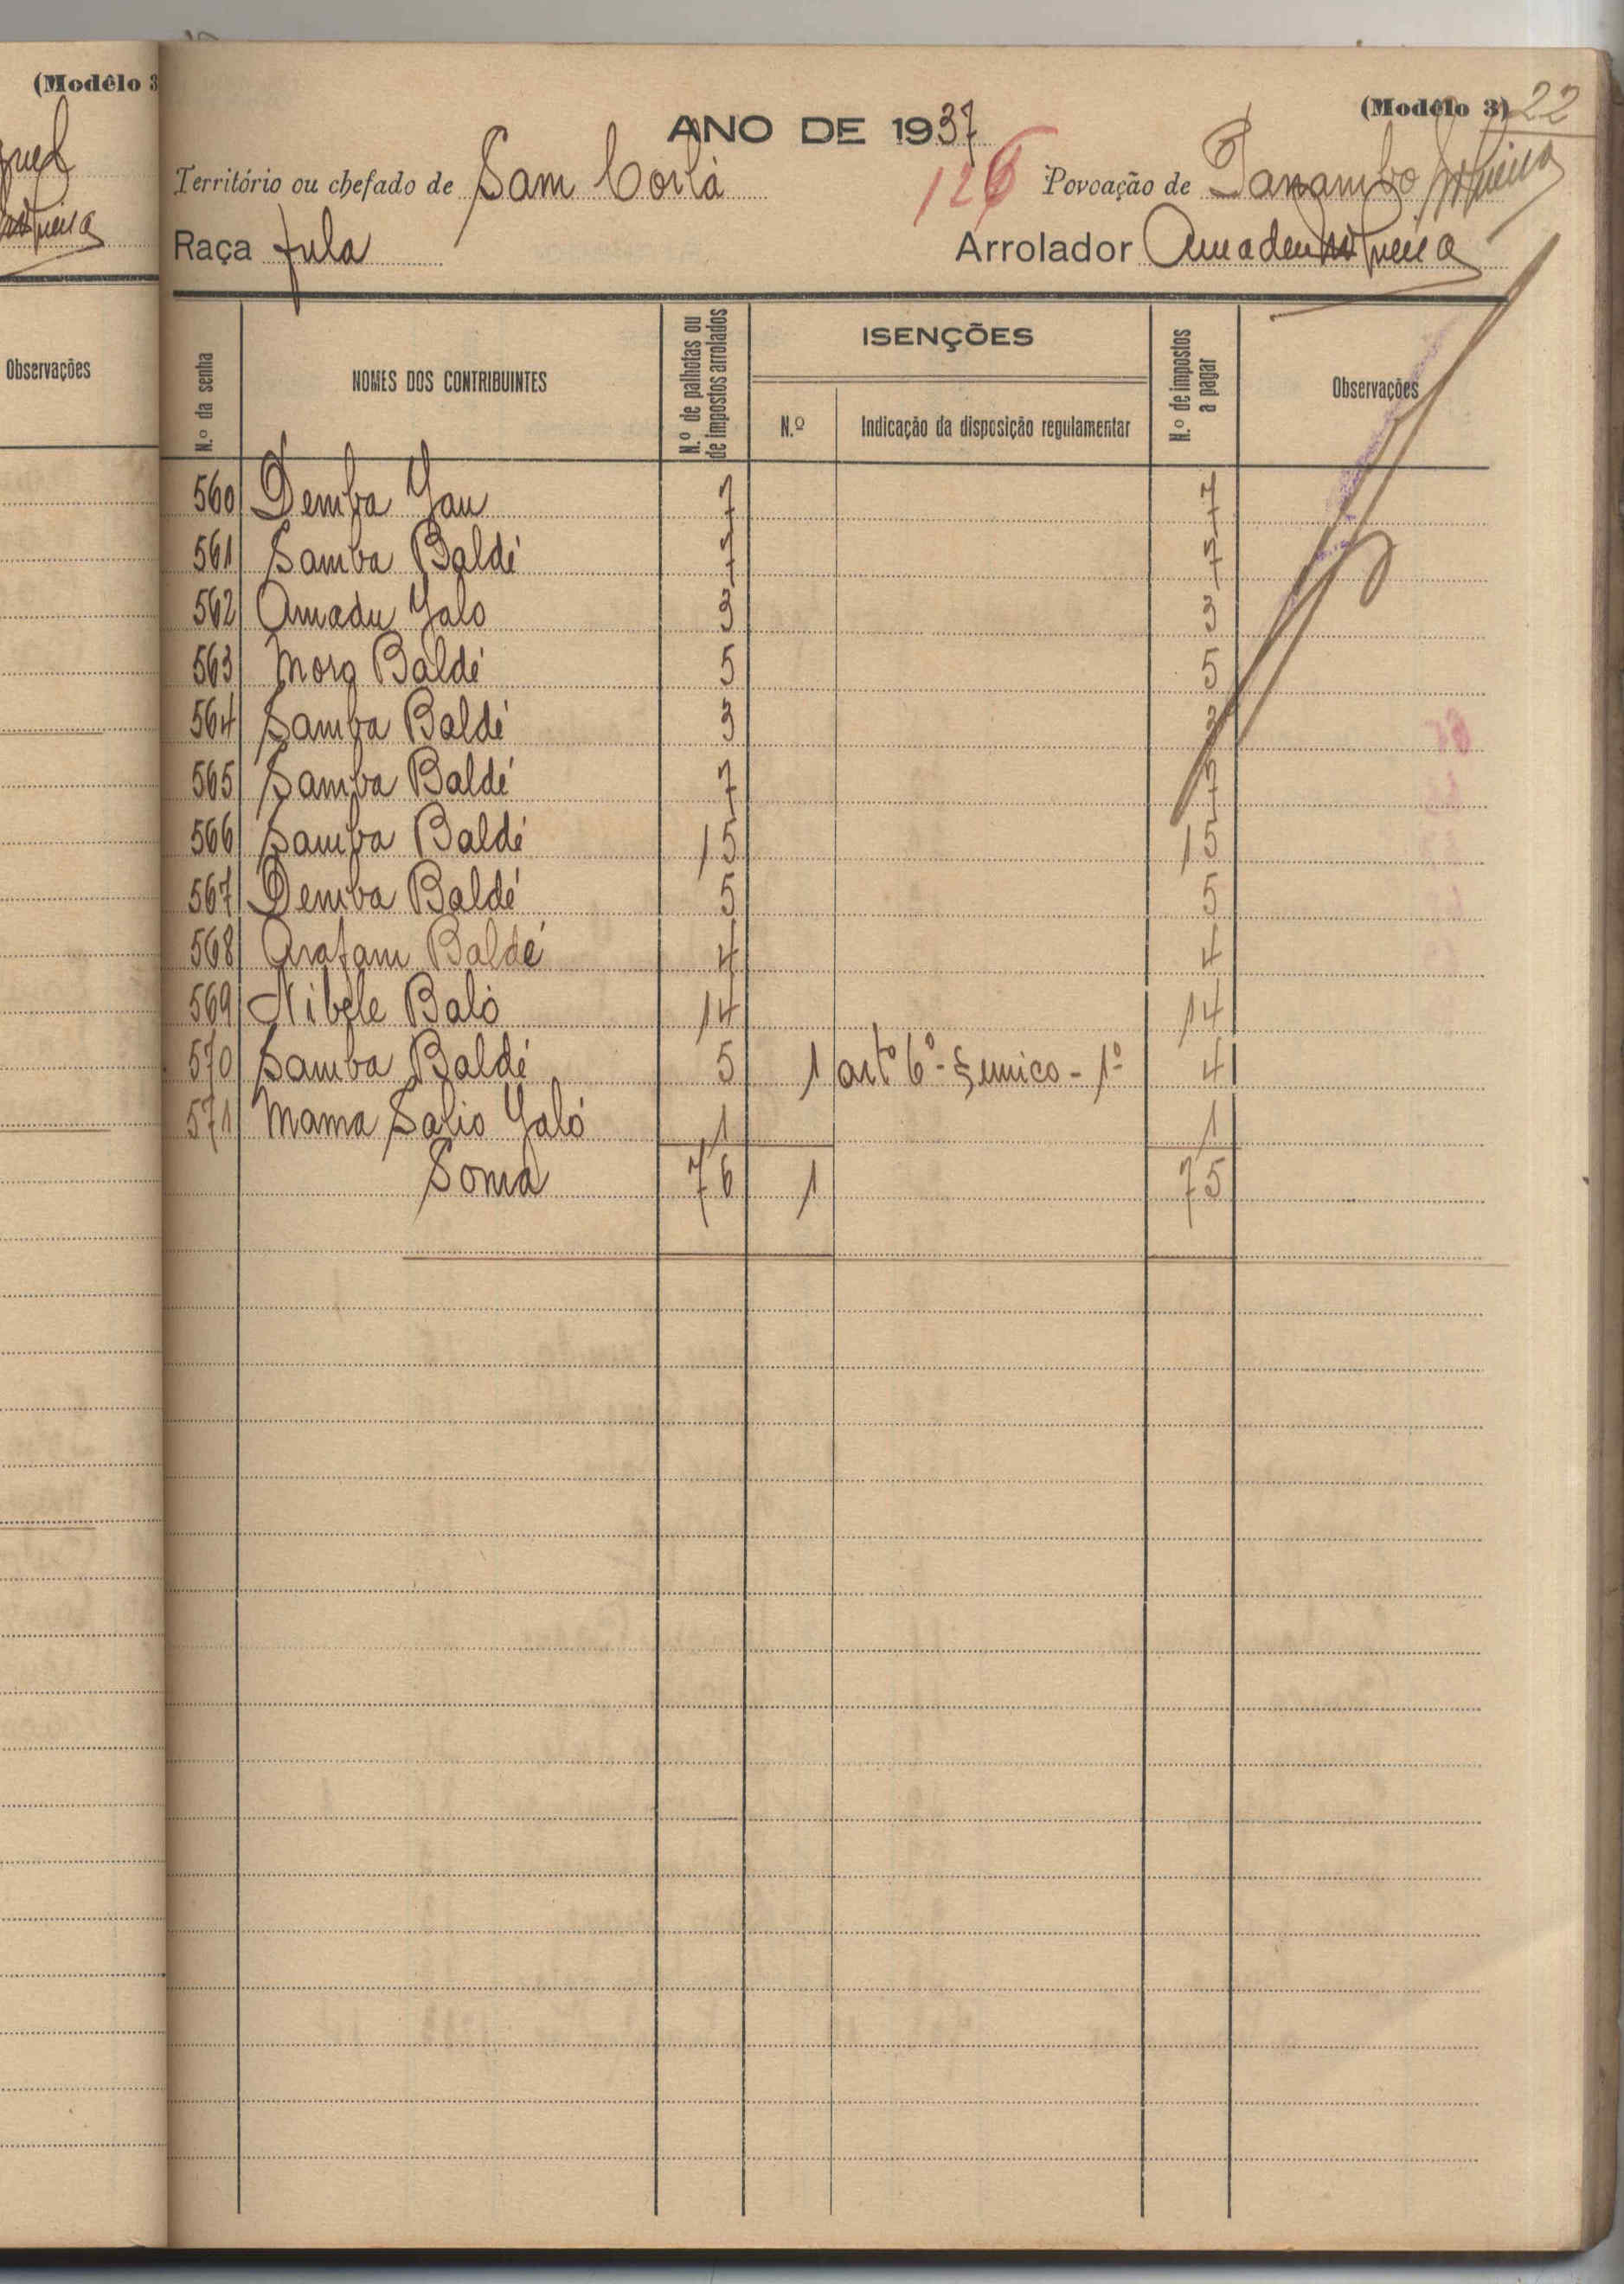 (Modêlo 3
Observações
(Modêlo 3) 22
ANO DE 1937
Território ou chefado de Sam Corlá 126 Povoação de
Raça fula Arrolador Amadeu
N.º da senha NOMES DOS CONTRIBUINTES N.º de palhotas ou de impostos arrolados ISENÇÕES N.º de impostos a pagar Observações
N.º Indicação da disposição regulamentar
560 Demba Jau 7 7
561 Samba Baldé 7 7
562 Amadu Jalo 3 3
563 Moro Baldé 5 5
564 Samba Baldé 3 3
565 Samba Baldé 7 7
566 Samba Baldé 15 15
567 Demba Baldé 5 5
568 Arafam Baldé 4 4
569 Nibele Baló 14 14
570 Samba Baldé 5 1 artº 6º - § unico - 1º 4
571 Mama Salio Jaló 1 1
Soma 76 1 75